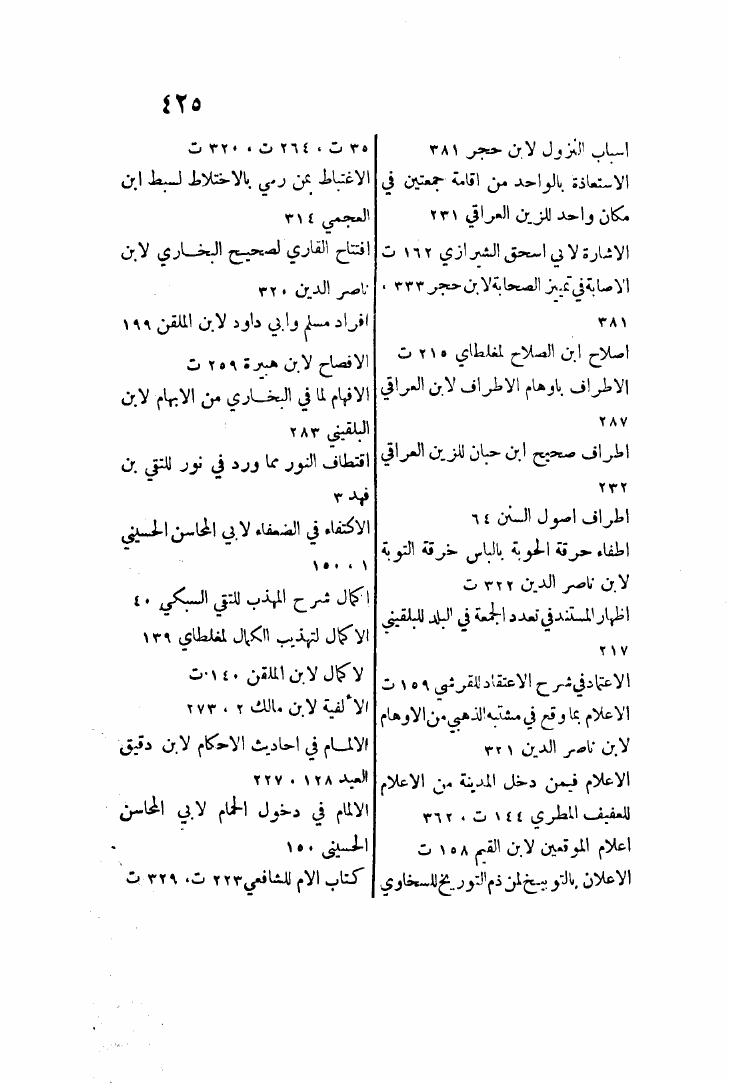 ٤٢٥
اسباب النزول لابن حجر ٣٨١
الاستعاذة بالواحد من اقامة جمعتين في
مكان واحد للزين العراقي ٢٣١
الاشارة لابي اسحق الشيرازي ١٦٢ ت
الاصابة في تمييز الصحابة لابن حجر ٣٣٣ ،
٣٨١
اصلاح ابن الصلاح لمغلطاي ٢١٥ ت
الاطراف باوهام الاطراف لابن العراقي
٢٨٧
اطراف صحيح ابن حبان للزين العراقي
٢٣٢
اطراف اصول السنن ٦٤
اطفاء حرقة الحوبة بالباس خرقة التوبة
لابن ناصر الدين ٣٢٢ ت
اظهار المستند في تعدد الجمعة في البلد للبلقيني
٢١٧
الاعتماد في شرح الاعتقاد للقرشي ١٥٩ ت
الاعلام بما وقع في مشتبه الذهبي من الاوهام
لابن ناصر الدين ٣٢١
الاعلام فيمن دخل المدينة من الاعلام
للعفيف المطري ١٤٤ ت ، ٣٦٢
اعلام الموقعين لابن القيم ١٥٨ ت
الاعلان بالتوبيخ لمن ذم التوريخ للسخاوي
٣٥ ت ، ٢٦٤ ت ، ٣٢٠ ت
الاغتباط بمن رمي بالاختلاط لسبط ابن
العجمي ٣١٤
افتتاح القاري لصحيح البخاري لابن
ناصر الدين ٣٢٠
افراد مسلم وابي داود لابن الملقن ١٩٩
الافصاح لابن هبيرة ٢٥٩ ت
الافهام لما في البخاري من الابهام لابن
البلقيني ٢٨٣
اقتطاف النور مما ورد في نور للتقي بن
فهد ٣
الاكتفاء في الضعفاء لابي المحاسن الحسيني
١ ، ١٥٠
اكمال شرح المهذب للتقي السبكي ٤٠
الاكمال لتهذيب الكمال لمغلطاي ١٣٩
لاكمال لابن الملقن ١٤٠ت
الألفية لابن مالك ٢ ، ٢٧٣
الالمام في احاديث الاحكام لابن دقيق
العيد ١٢٨ ، ٢٢٧
الالمام في دخول الحمام لابي المحاسن
الحسيني ١٥٠
كتاب الام للشافعي ٢٢٣ ت، ٣٢٩ ت